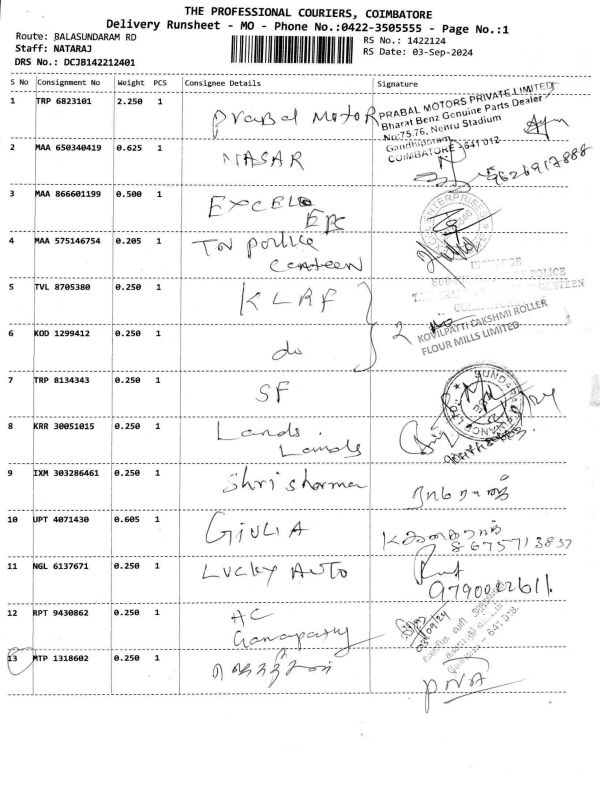 THE PROFESSIONAL COURIERS, COIMBATORE
Delivery Runsheet - MO - Phone No.:0422-3505555 - Page No.:1
Route: BALASUNDARAM RD
RS No.: 1422124
Staff: NATARAJ
RS Date: 03-Sep-2024
DRS No.: DCJB142212401
S No Consignment No Weight PCS Consignee Details Signature
1 TRP 6823101 2.250 1 Prabal Motor
PRABAL MOTORS PRIVATE LIMITED
Bharat Benz Genuine Parts Dealer
No:75,76, Nehru Stadium
Gandhipuram
COIMBATORE - 641 012
2 MAA 650340419 0.625 1 MASAR 9626917888
3 MAA 866601199 0.500 1 EXCELO
EPC
4 MAA 575146754 0.205 1 TN police
canteen
5 TVL 8705380 0.250 1 KLRF 2
KOVILPATTI LAKSHMI ROLLER
FLOUR MILLS LIMITED
6 KOD 1299412 0.250 1 do
7 TRP 8134343 0.250 1 SF
8 KRR 30051015 0.250 1 Lands
Lamds
9 IXM 303286461 0.250 1 Shri sharma
10 UPT 4071430 0.605 1 GIULIA
8675713837
11 NGL 6137671 0.250 1 LUCKY AUTO
9790002611
12 RPT 9430862 0.250 1 AC
Ganapathy
03/09/24
13 MTP 1318602 0.250 1
PNA